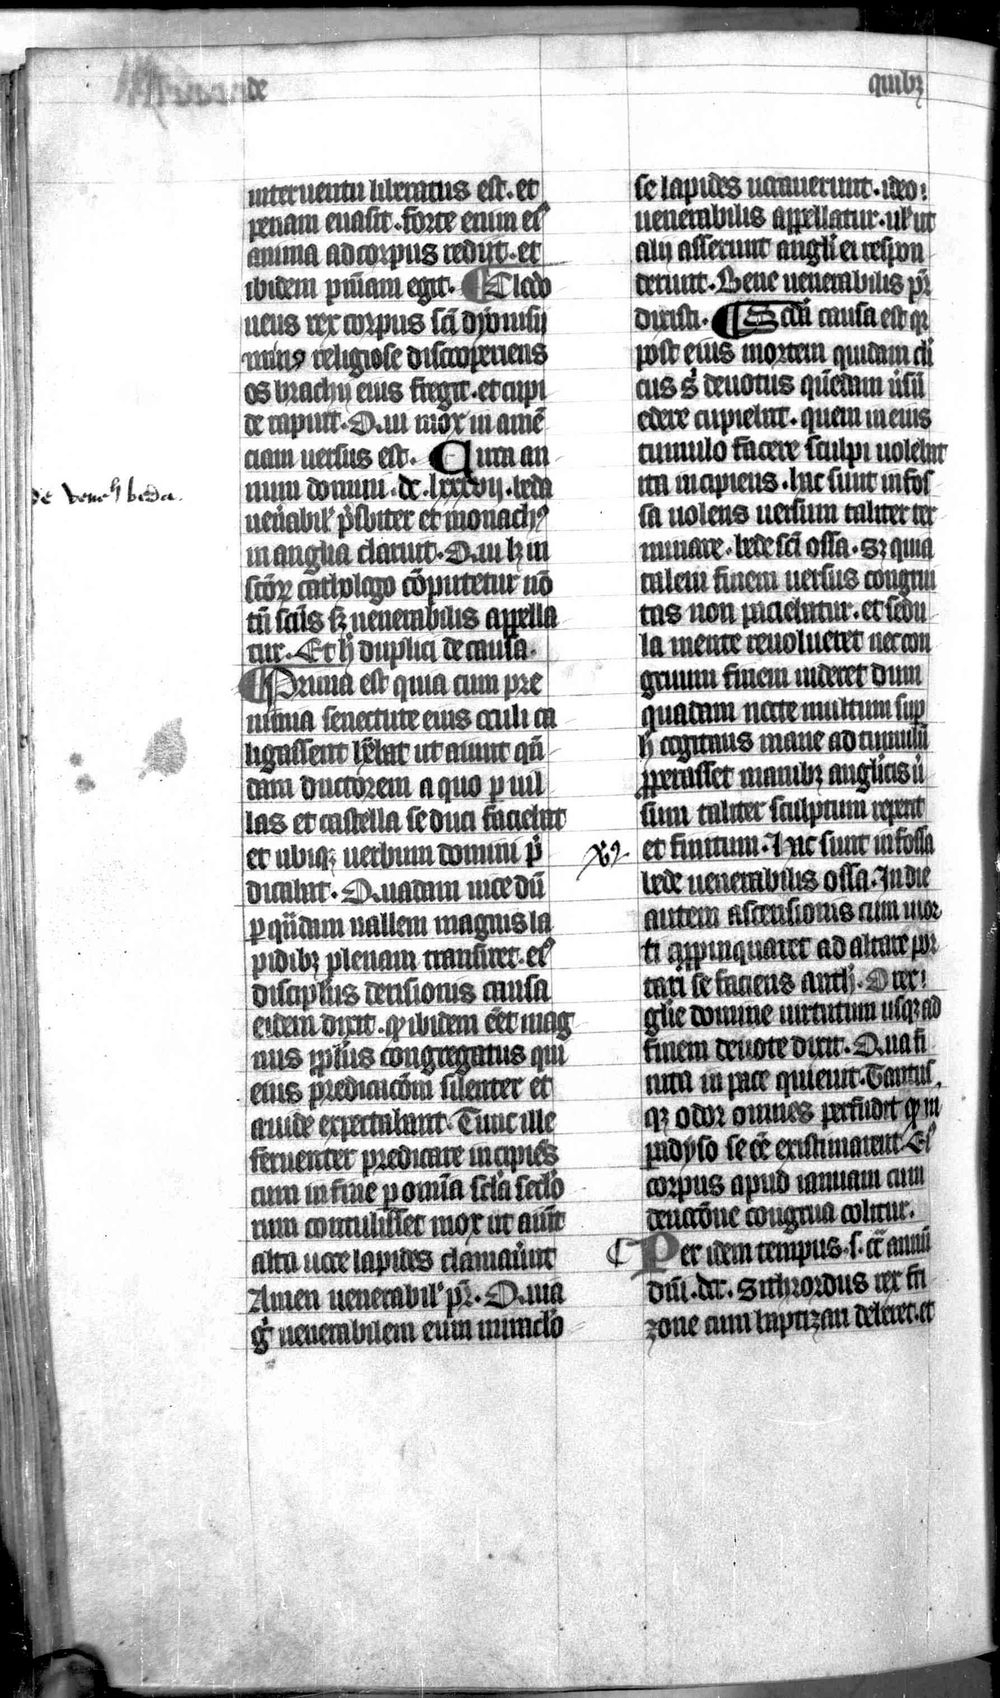 de
quibꝫ
interuentu liberatus est. et
penam euasit. forte enim eiꝰ
anima ad corpus redijt. et
ibidem pniam egit. Clodo
ueus rex corpus sci dyonisij
minꝰ religiose discooperiens
os brachij eius fregit. et cupi
de rapuit. Qui mox in amē
ciam uersus est. Cum an
num domini. dc. lxxxvij. beda
ueñabilꝭ p̄sbiter et monachꝰ
in anglia claruit. Qui lꝫ in
sctōꝝ cathologo cōputetur nō
tn̄ scūs sꝫ uenerabilis appella
tur. Et h̄ duplici de causa.
Prima est quia cum pre
nimia senectute eius oculi ca
ligassent h̄ebat ut aiunt quē
dam ductorem a quo p uil
las et castella se duci faciebat
et ubiqꝫ uerbum domini p̄
dicabat. Quadam uice dū
p quādam uallem magnis la
pidibꝫ plenam transiret. eiꝰ
discipulus derisionis causa
eidem dixit. ꝙ ibidem eēt mag
nus pplus congregatus qui
eius predicacōm silenter et
auide expectabant. Tunc ille
feruenter predicare incipiēs
cum in fine p omnia scla seclo
rum contulisset mox ut aiūt
alta uoce lapides clamauūt
Amen uenerabilꝭ pr̄. Quia
g̊ uenerabilem eum miraclo
se lapides uocauerunt. ideo
uenerabilis appellatur. uꝉ ut
alij asserunt angli ei respon
derunt. Bene uenerabilis pr̄
dixisti. Scda causa est qꝛ
post eius mortem quidam cli
cus s̄ deuotus quēdam ūsū
edere cupiebat. quem in eius
tumulo facere sculpi uolebat
ita incipiens. hac sunt in fos
sa uolens uersum taliter ter
minare. bede sci ossa. Sꝫ quia
talem finem uersus congrui
tas non paciebatur. et sedu
la mente reuolueret nec con
gruum finem uideret dum
quadam nocte multum sup
h̄ cogitans mane ad tumulū
pperasset manibꝫ anglicis ū
sum taliter sculptum reperit
et finitum. Hac sunt in fossa
bede uenerabilis ossa. In die
autem ascensionis cum mor
ti appinquaret ad altare por
tari se faciens anth̄. O rex
glie domine uirtutum usqꝫ ad
finem deuote dixit. Qua fi
nita in pace quieuit. Tantus
qꝫ odor omnes perfudit ꝙ in
padyso se eē existimarent. Eiꝰ
corpus apud ianuam cum
deuocōne congrua colitur.
Per idem tempus. s. cā annū
dn̄i. dcc. Sithrordus rex fri
zone cum baptizari deberet. et
de veneꝉ beda.